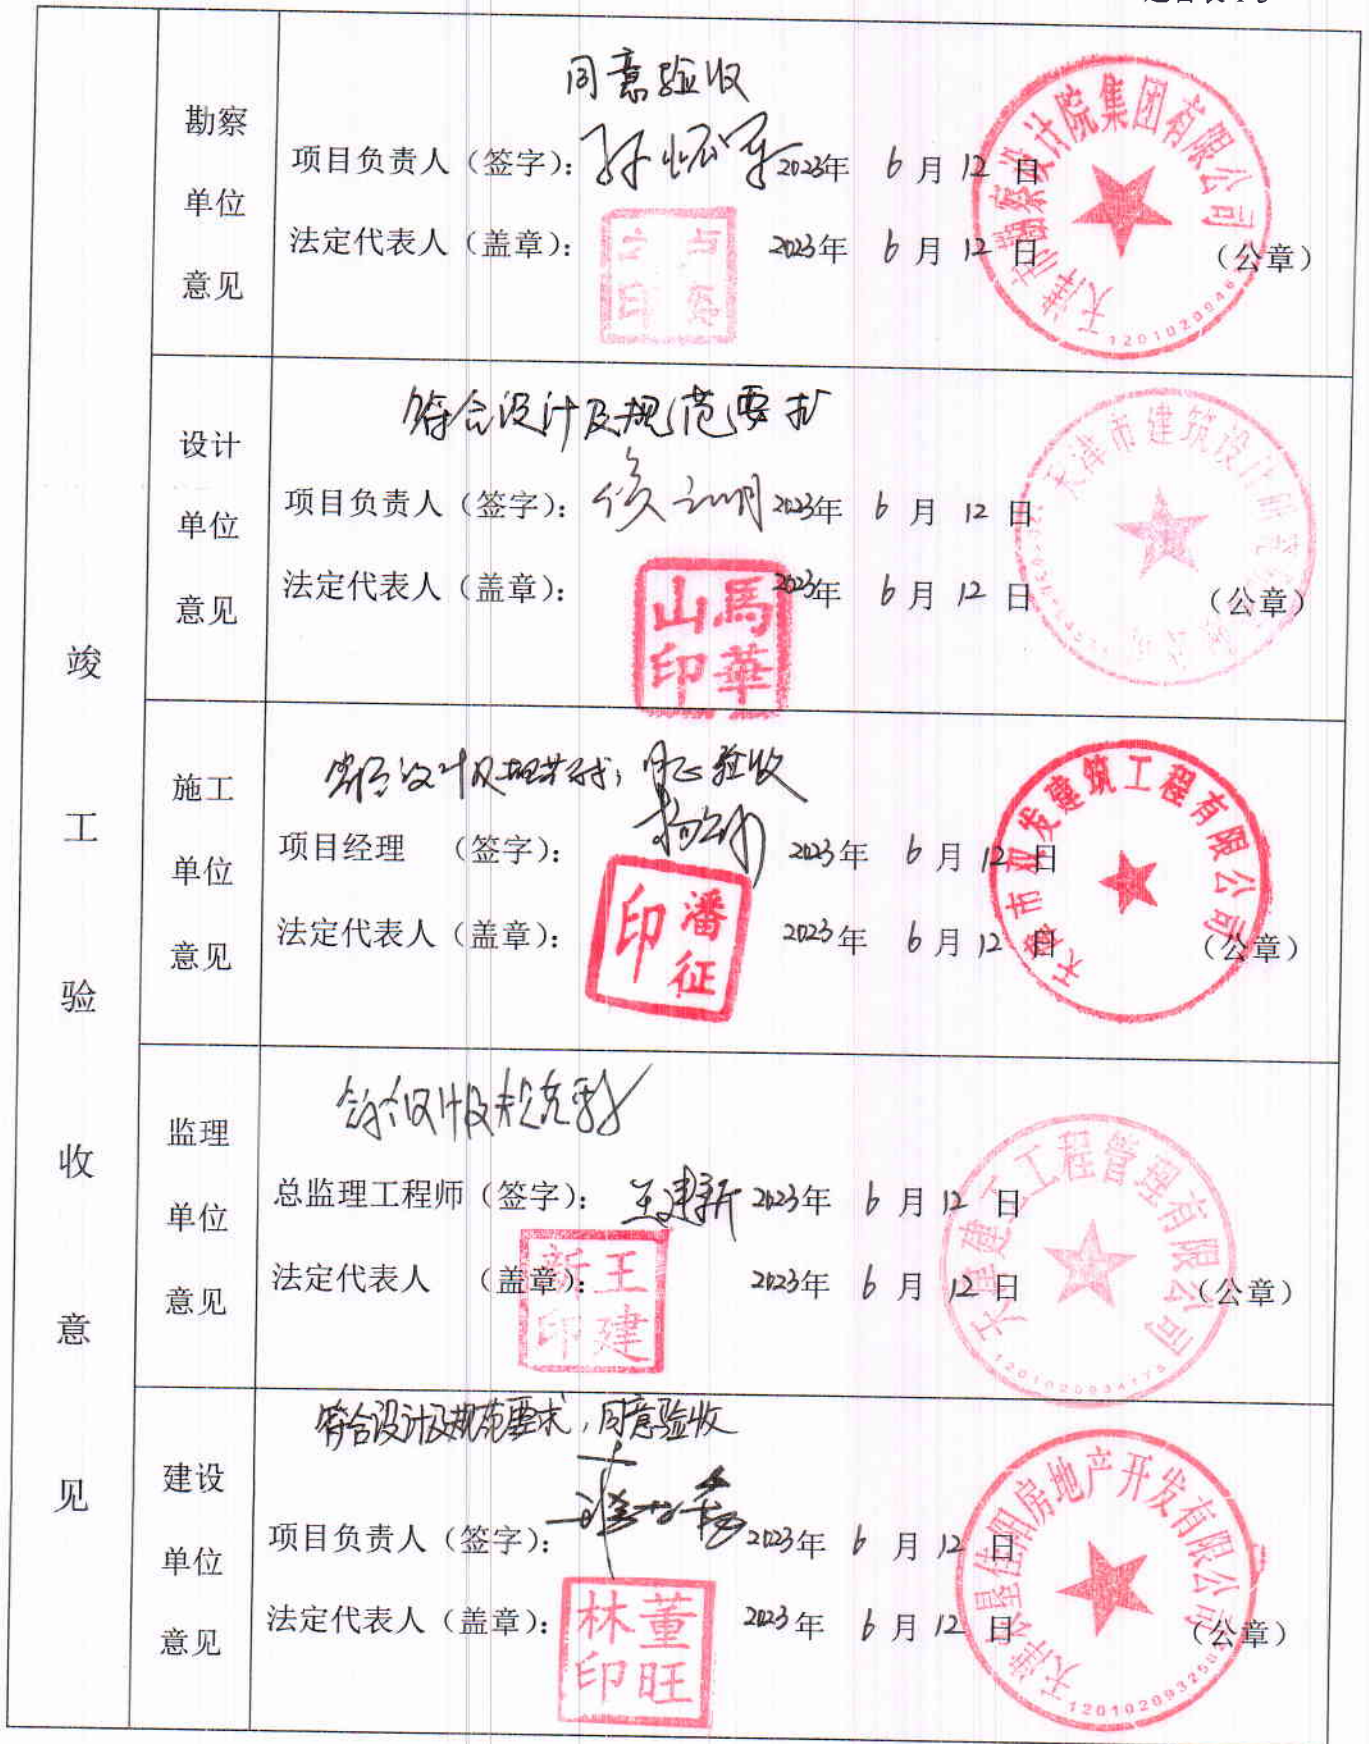 竣工验收意见
勘察单位意见
同意验收
项目负责人（签字）： 2023年 6月12日
法定代表人（盖章）： 2023年 6月12日
（公章）
勘察设计院集团有限公司
设计单位意见
符合设计及规范要求
项目负责人（签字）： 2023年 6月12日
法定代表人（盖章）： 2023年 6月12日
（公章）
馬華山印
天津市建筑设计研究院
施工单位意见
符合设计及规范要求，同意验收
项目经理 （签字）： 2023年 6月12日
法定代表人（盖章）： 2023年 6月12日
（公章）
潘征印
发建筑工程有限公司
监理单位意见
符合设计及规范要求
总监理工程师（签字）： 王建新 2023年 6月12日
法定代表人 （盖章）： 2023年 6月12日
（公章）
王建新印
建工工程管理有限公司
1201020934175
建设单位意见
符合设计及规范要求，同意验收
项目负责人（签字）： 2023年 6月12日
法定代表人（盖章）： 2023年 6月12日
（公章）
董旺林印
佳阳房地产开发有限公司